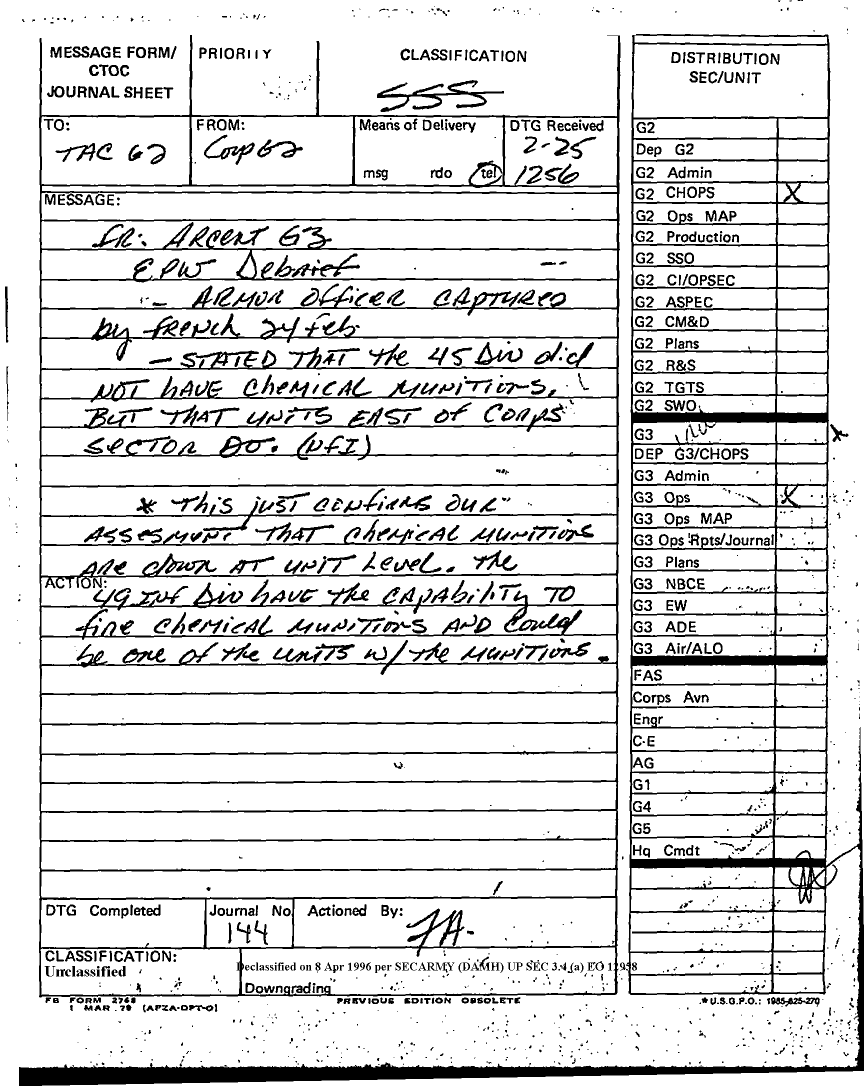 MESSAGE FORM/
CTOC
JOURNAL SHEET
PRIORITY
CLASSIFICATION
SSS
TO:
TAC G2
FROM:
Corp G2
Means of Delivery
msg rdo tel
DTG Received
2-25
1256
MESSAGE:
FR: ARCENT G3
EPW Debrief
- ARMOR OFFICER CAPTURED
by FRENCH 24 Feb
- STATED THAT the 45 DIV did
NOT HAVE CHEMICAL MUNITIONS,
BUT THAT UNITS EAST OF CORPS
SECTOR DO. (NFI)
* THIS just CONFIRMS OUR
ASSESMENT THAT CHEMICAL MUNITIONS
ARE down AT UNIT LEVEL. THE
ACTION:
49 INF DIV HAVE THE CAPABILITY TO
fire CHEMICAL MUNITIONS AND could
be one of the UNITS w/ the MUNITIONS.
DTG Completed
Journal No.
144
Actioned By:
CLASSIFICATION:
Unclassified
Declassified on 8 Apr 1996 per SECARMY (DAMH) UP SEC 3.4 (a) EO 12958
Downgrading
FB FORM 2768
1 MAR 79 (AFZA-DPT-O)
PREVIOUS EDITION OBSOLETE
DISTRIBUTION
SEC/UNIT
G2
Dep G2
G2 Admin
G2 CHOPS X
G2 Ops MAP
G2 Production
G2 SSO
G2 CI/OPSEC
G2 ASPEC
G2 CM&D
G2 Plans
G2 R&S
G2 TGTS
G2 SWO
G3 X
DEP G3/CHOPS
G3 Admin
G3 Ops X
G3 Ops MAP
G3 Ops Rpts/Journal
G3 Plans
G3 NBCE
G3 EW
G3 ADE
G3 Air/ALO
FAS
Corps Avn
Engr
C-E
AG
G1
G4
G5
Hq Cmdt
* U.S.G.P.O.: 1985-625-270